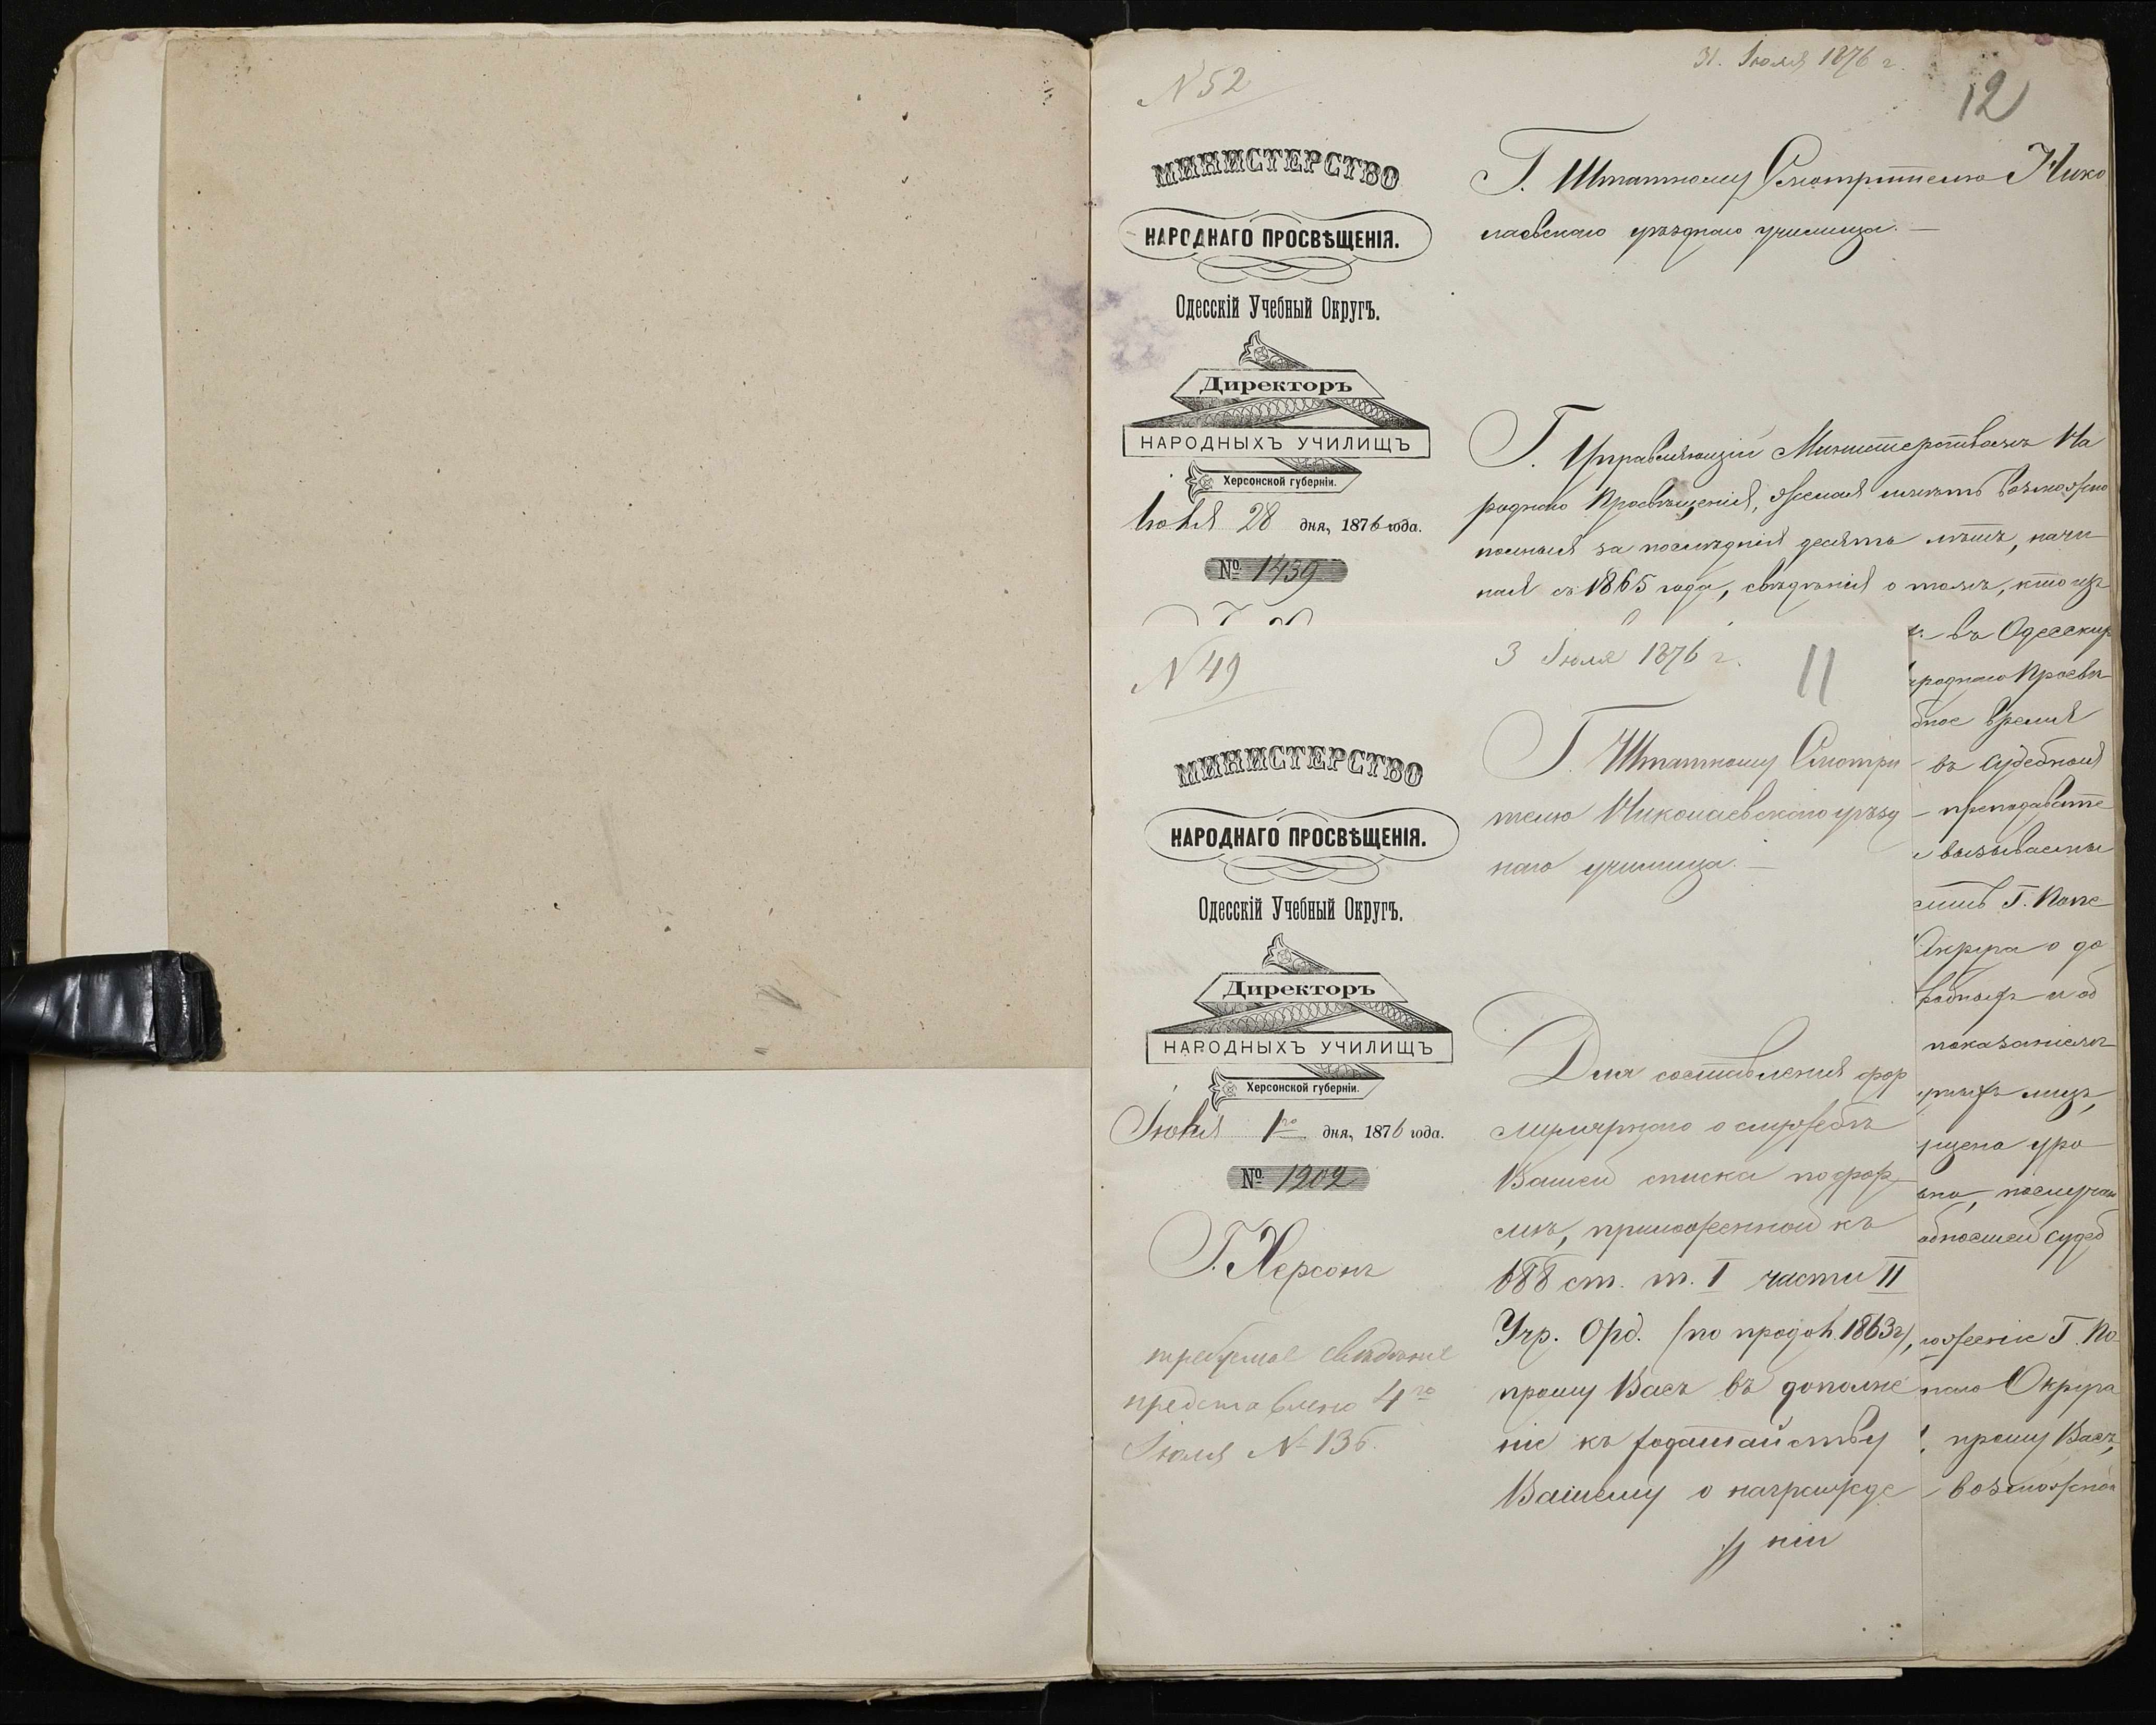 N 52
31. Іюля 1876 г.
12
МИНИСТЕРСТВО
НАРОДНАГО ПРОСВѢЩЕНІЯ.
Одесскій Учебный Округъ.
Директоръ
НАРОДНЫХЪ УЧИЛИЩЪ
Херсонской губерніи.
Іюля 28 дня, 1876 года.
№ 1439
Г. Штатному Смотрителю Нико
лаевскаго уѣзднаго училища.
Г. Управляющій Министерствомъ На
роднаго Просвѣщенія, желая имѣть возможно
полныя за послѣднія десять лѣтъ, начи
ная съ 1865 года, свѣдѣнія о томъ, кто изъ
въ Одесскир
роднаго Просвѣ
бное время
въ судебныя
преподавате
вызываемы
Г. Попе
Округа о до
и об
показаніемъ
лицъ,
уро
, послуча
судеб
ложеніе Г. По
наго Округа
, прошу Васъ,
возможно
N 49
3 Іюля 1876 г.
11
МИНИСТЕРСТВО
НАРОДНАГО ПРОСВѢЩЕНІЯ.
Одесскій Учебный Округъ.
Директоръ
НАРОДНЫХЪ УЧИЛИЩЪ
Херсонской губерніи.
Іюля 1го дня, 1876 года.
№ 1202
Г. Херсонъ
требуемое свѣдѣніе
представлено 4го
Іюля № 136.
Г. Штатному Смотри
телю Николаевскаго уѣзд
наго училища.
Для составленія фор
мулярнаго о службѣ
Вашей списка по фор
мѣ, приложенной къ
688 ст. т. I части II
Учр. Орд. (по продол. 1863 г),
прошу Васъ въ дополне
ніе къ ходатайству
Вашему о награжде
ніи